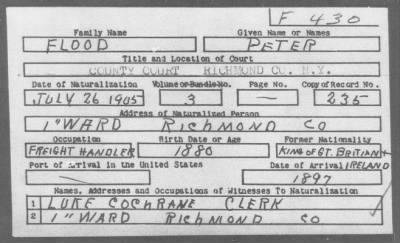 F 430
Family Name Given Name or Names
FLOOD PETER
Title and Location of Court
COUNTY COURT RICHMOND CO. N.Y.
Date of Naturalization Volume or Bundle No. Page No. Copy of Record No.
JULY 26 1905 3 — 235
Address of Naturalized Person
1" WARD RICHMOND CO
Occupation Birth Date or Age Former Nationality
FREIGHT HANDLER 1880 KING OF GT. BRITIAN +
Port of Arrival in the United States Date of Arrival IRELAND
1897
Names, Addresses and Occupations of Witnesses To Naturalization
1 LUKE COCHRANE CLERK
2 1" WARD RICHMOND CO